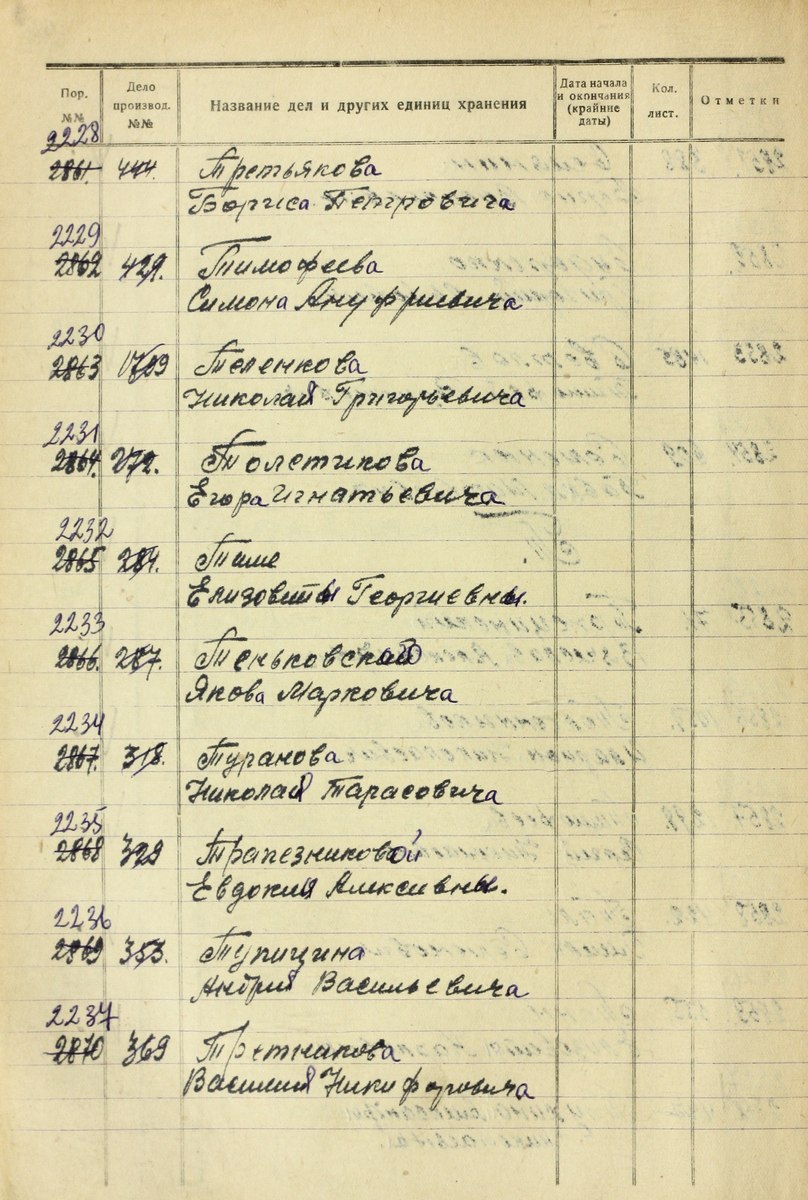 Пор. №№
Дело производ. №№
Название дел и других единиц хранения
Дата начала и окончания (крайние даты)
Кол. лист.
Отметки
2228
2861 444. Третьякова
Бориса Петровича
2229
2862 429. Тимофеева
Симона Ануфриевича
2230
2863 1709 Теленкова
Николая Григорьевича
2231
2864. 272. Толстикова
Егора Игнатьевича
2232
2865 284. Тиме
Елизоветы Георгиевны.
2233
2866. 287. Теньковского
Якова Марковича
2234
2867. 318. Туранова
Николая Тарасовича
2235
2868 329 Трапезниковой
Евдокия Алексивны.
2236
2869 353. Тупицина
Андрия Васильевича
2237
2870 369 Третникова
Василия Никифоровича